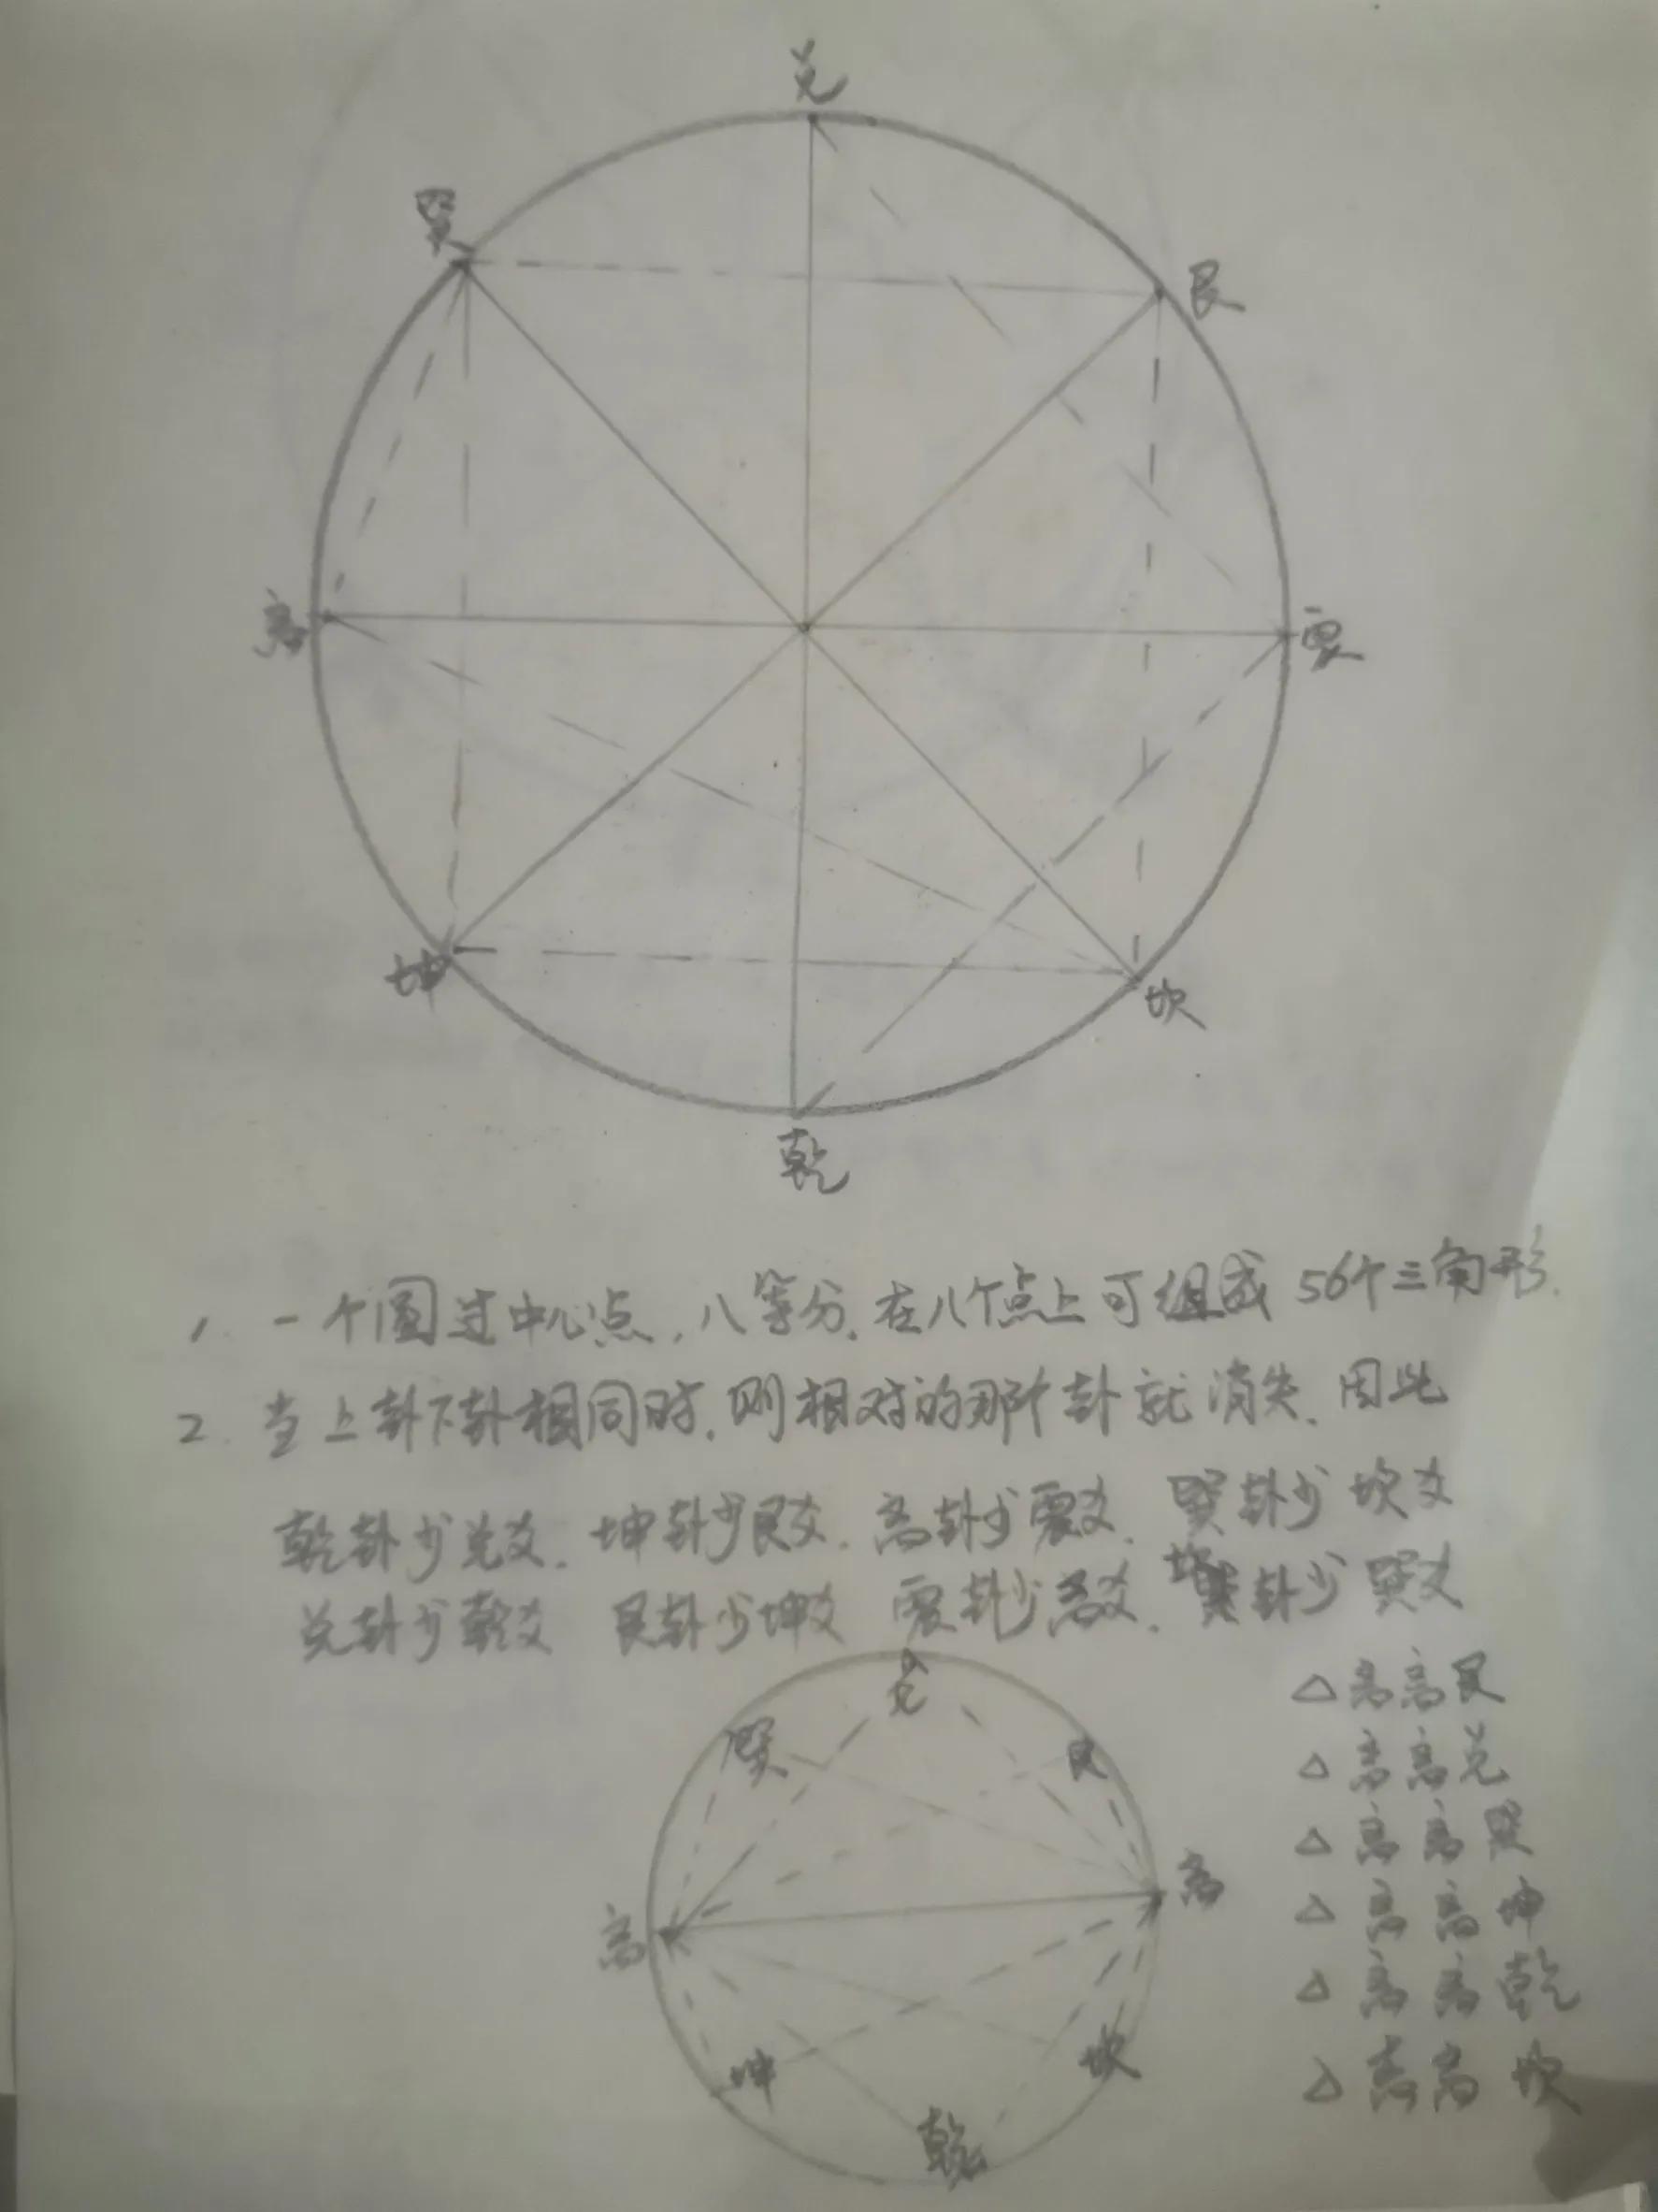 兑
巽
艮
离
震
坤
坎
乾
1. 一个圆过中心点，八等分，在八个点上可组成56个三角形.
2. 当上卦下卦相同时，则相对的那个卦就消失，因此
乾卦少兑爻. 坤卦少艮爻. 离卦少震爻. 巽卦少坎爻
兑卦少乾爻 艮卦少坤爻 震卦少离爻. 坎卦少巽爻
兑
巽
艮
离
离
坤
坎
乾
△离离艮
△离离兑
△离离巽
△离离坤
△离离乾
△离离坎